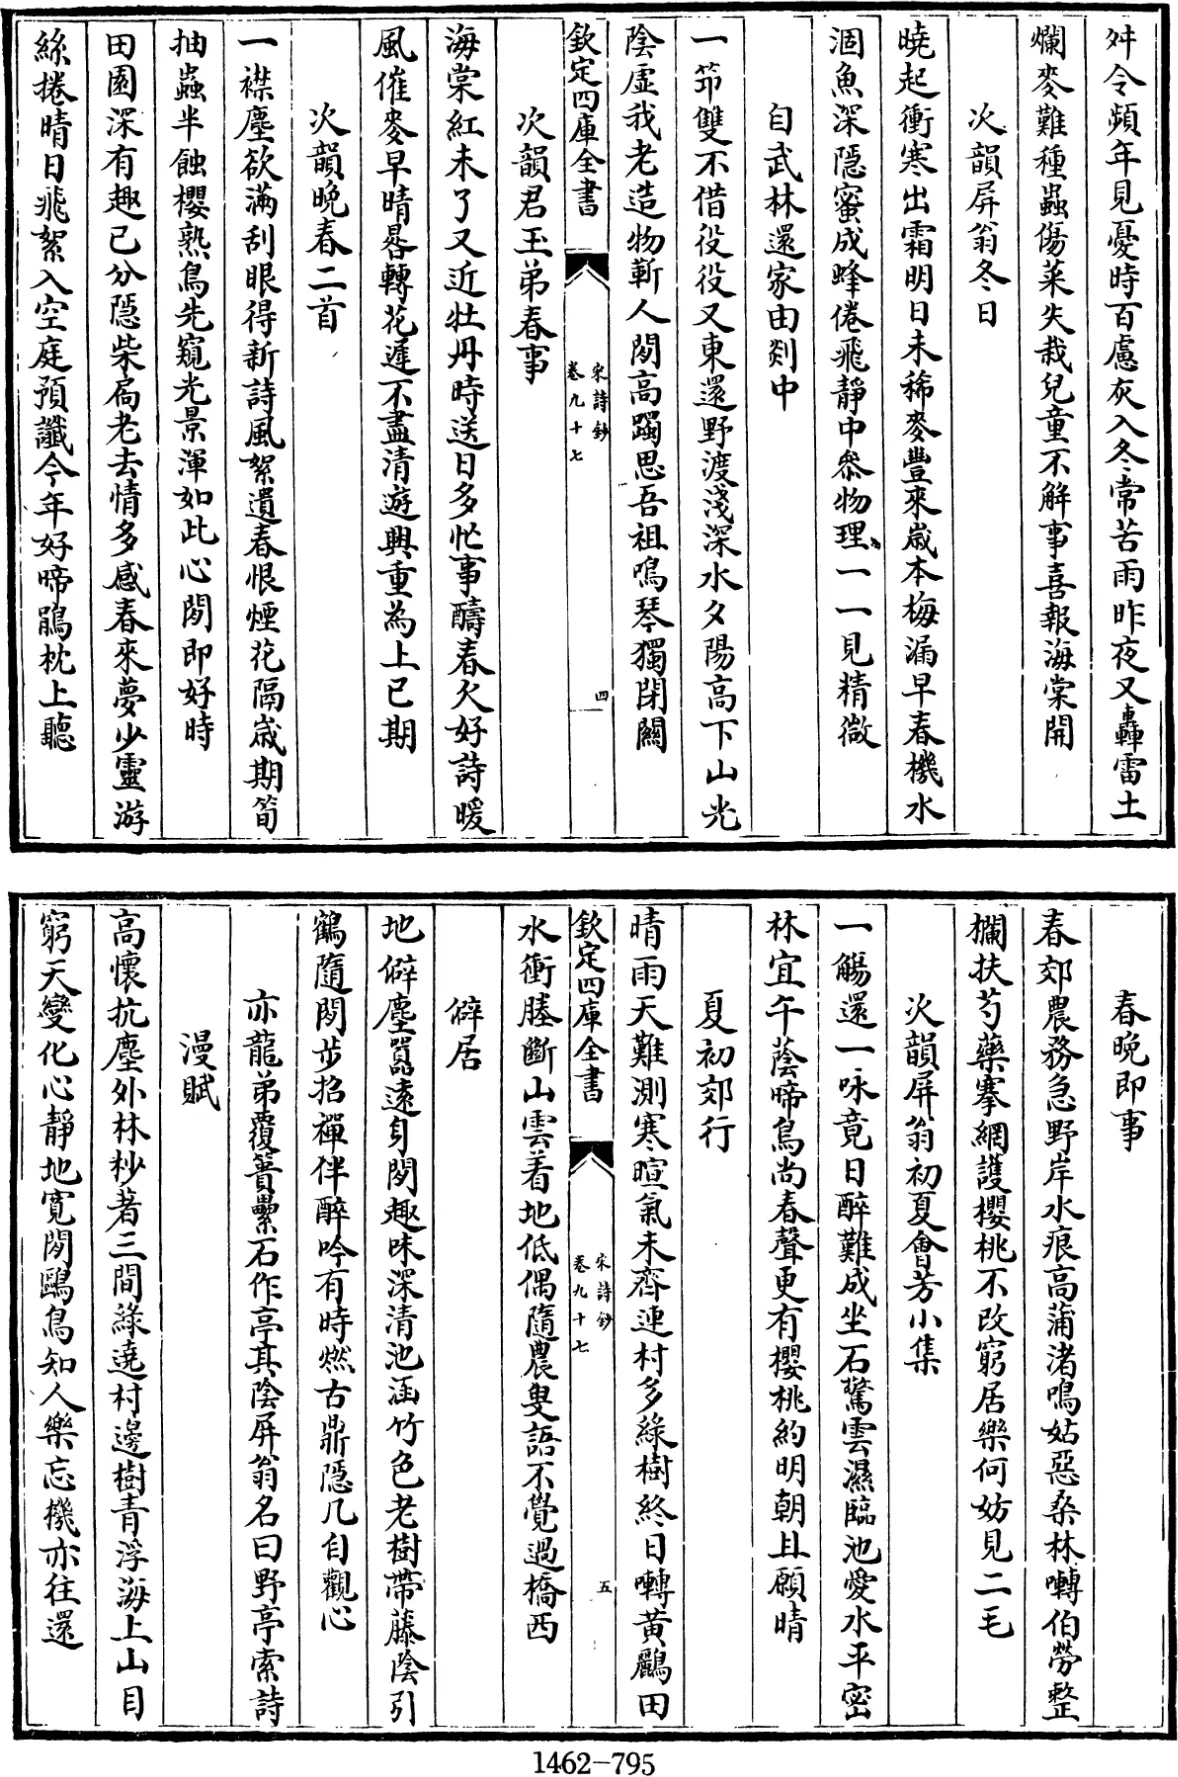 舛令頻年見憂時百慮灰入冬常苦雨昨夜又轟雷土
爛麥難種蟲傷菜失栽兒童不解事喜報海棠開
次韻屏翁冬日
曉起衝寒出霜明日未稀麥豐來歲本梅漏早春機水
涸魚深隱蜜成蜂倦飛靜中叅物理一一見精微
自武林還家由剡中
一笻雙不借役役又東還野渡淺深水夕陽高下山光
陰虛我老造物靳人閒高躅思吾祖鳴琴獨閉關
欽定四庫全書
宋詩鈔
卷九十七
四
次韻君玉弟春事
海棠紅未了又近牡丹時送日多忙事醻春欠好詩暖
風催麥早晴晷轉花遲不盡清遊興重為上巳期
次韻晚春二首
一襟塵欲滿刮眼得新詩風絮遺春恨煙花隔歲期筍
抽蟲半蝕櫻熟鳥先窺光景渾如此心閒即好時
田園深有趣已分隱柴扃老去情多感春來夢少靈游
絲捲晴日飛絮入空庭預讖今年好啼鵑枕上聽
春晚即事
春郊農務急野岸水痕高蒲渚鳴姑惡桑林囀伯勞整
欄扶芍藥搴網護櫻桃不改窮居樂何妨見二毛
次韻屏翁初夏會芳小集
一觴還一咏竟日醉難成坐石驚雲濕臨池愛水平密
林宜午蔭啼鳥尚春聲更有櫻桃約明朝且願晴
夏初郊行
晴雨天難測寒暄氣未齊連村多綠樹終日囀黃鸝田
欽定四庫全書
宋詩鈔
卷九十七
五
水衝塍斷山雲着地低偶隨農叟語不覺過橋西
僻居
地僻塵囂遠身閒趣味深清池涵竹色老樹帶藤陰引
鶴隨閒步招禪伴醉吟有時燃古鼎隱几自觀心
亦龍弟覆簣纍石作亭其陰屏翁名曰野亭索詩
漫賦
高懷抗塵外林杪著三間綠遶村邊樹青浮海上山目
窮天變化心靜地寬閒鷗鳥知人樂忘機亦往還
1462-795